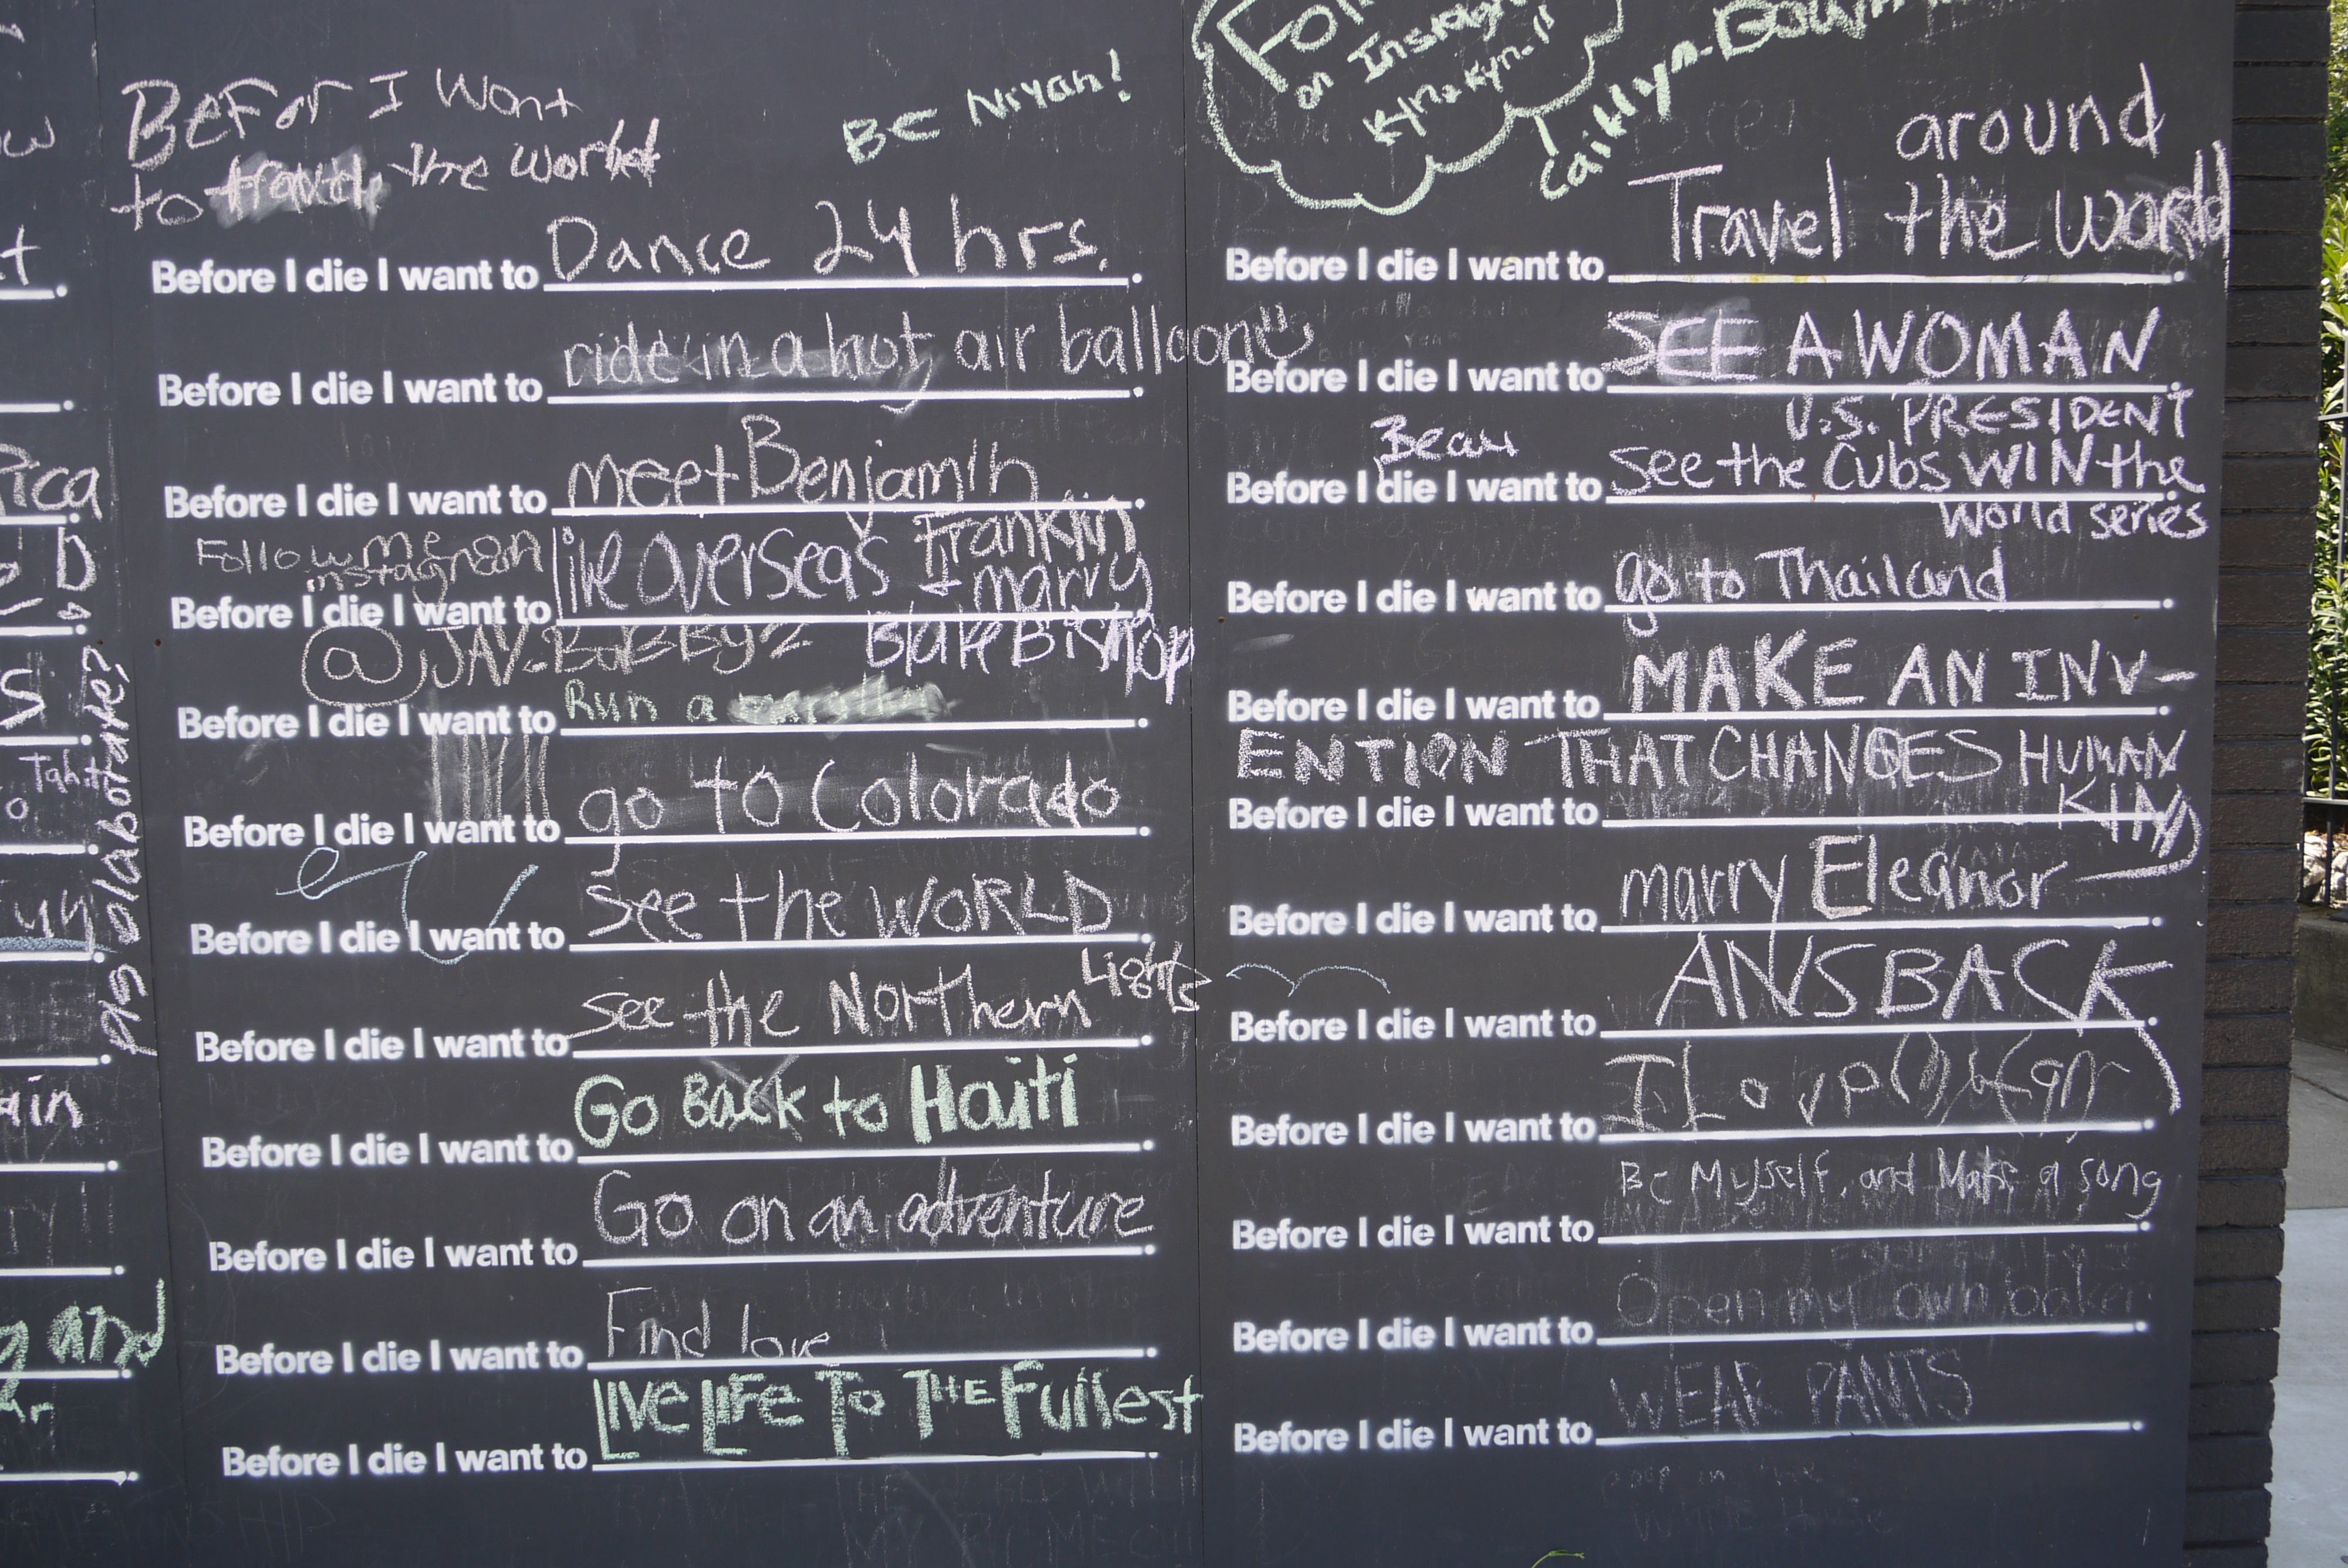 BeFor I Want
to travel the World
BE Niyah!
on Instagram
Before I die I want to Dance 24 hrs.
Before I die I want to ride in a hot air balloon
Before I die I want to meet Benjamin
Franklin
Follow me on
instagram
Before I die I want to live overseas
+ marry
Blake Bishop
Before I die I want to Run a
Before I die I want to go to Colorado
Before I die I want to see the WORLD
Before I die I want to see the Northern Lights
Before I die I want to Go Back to Haiti
Before I die I want to Go on an adventure
Before I die I want to Find love
Before I die I want to LIVE LIFE TO THE Fullest
around
Before I die I want to Travel the world
Before I die I want to SEE A WOMAN
U.S. PRESIDENT
Before I die I want to see the Cubs WIN the
World series
Before I die I want to go to Thailand
Before I die I want to MAKE AN INV-
ENTION THAT CHANGES HUMAN
KIND
Before I die I want to
Before I die I want to marry Eleanor
Before I die I want to ANS BACK
Before I die I want to
Before I die I want to Be Myself, and Make a song
Before I die I want to Open my own
Before I die I want to WEAR PANTS
pls colaborate?
Tahiti
rica
ain
and